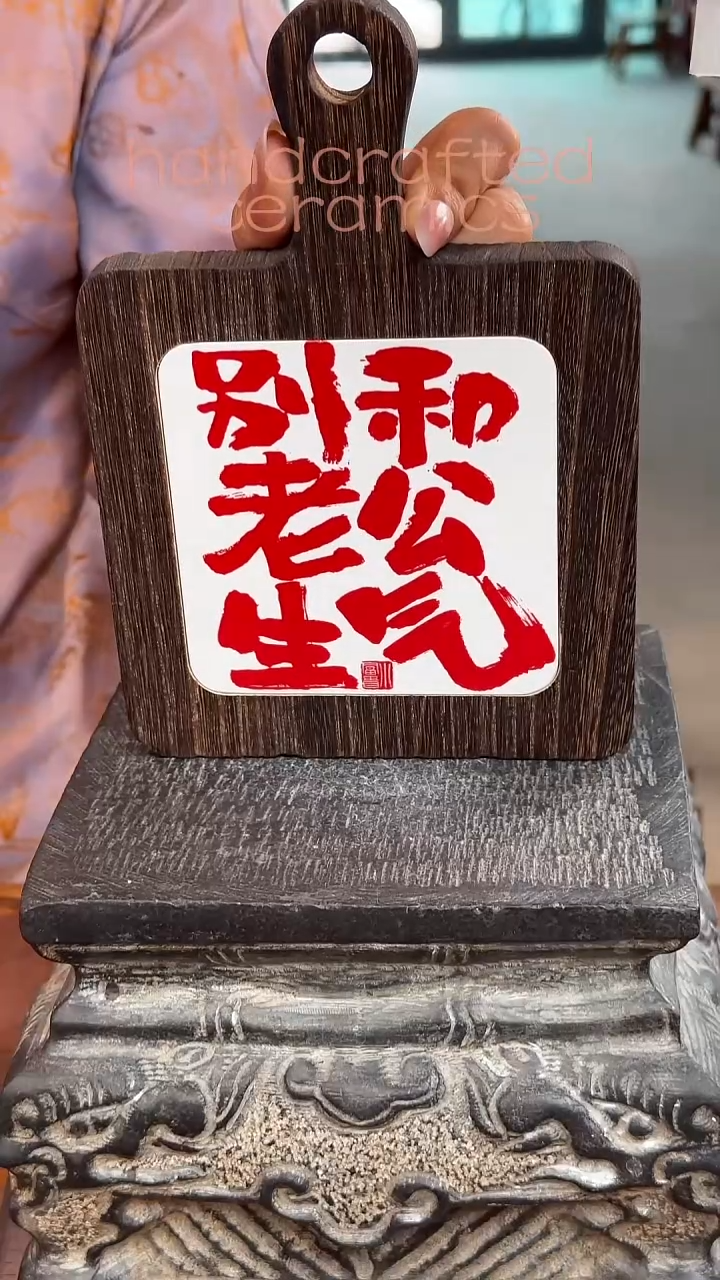 handcrafted
ceramics
别和
老公
生气